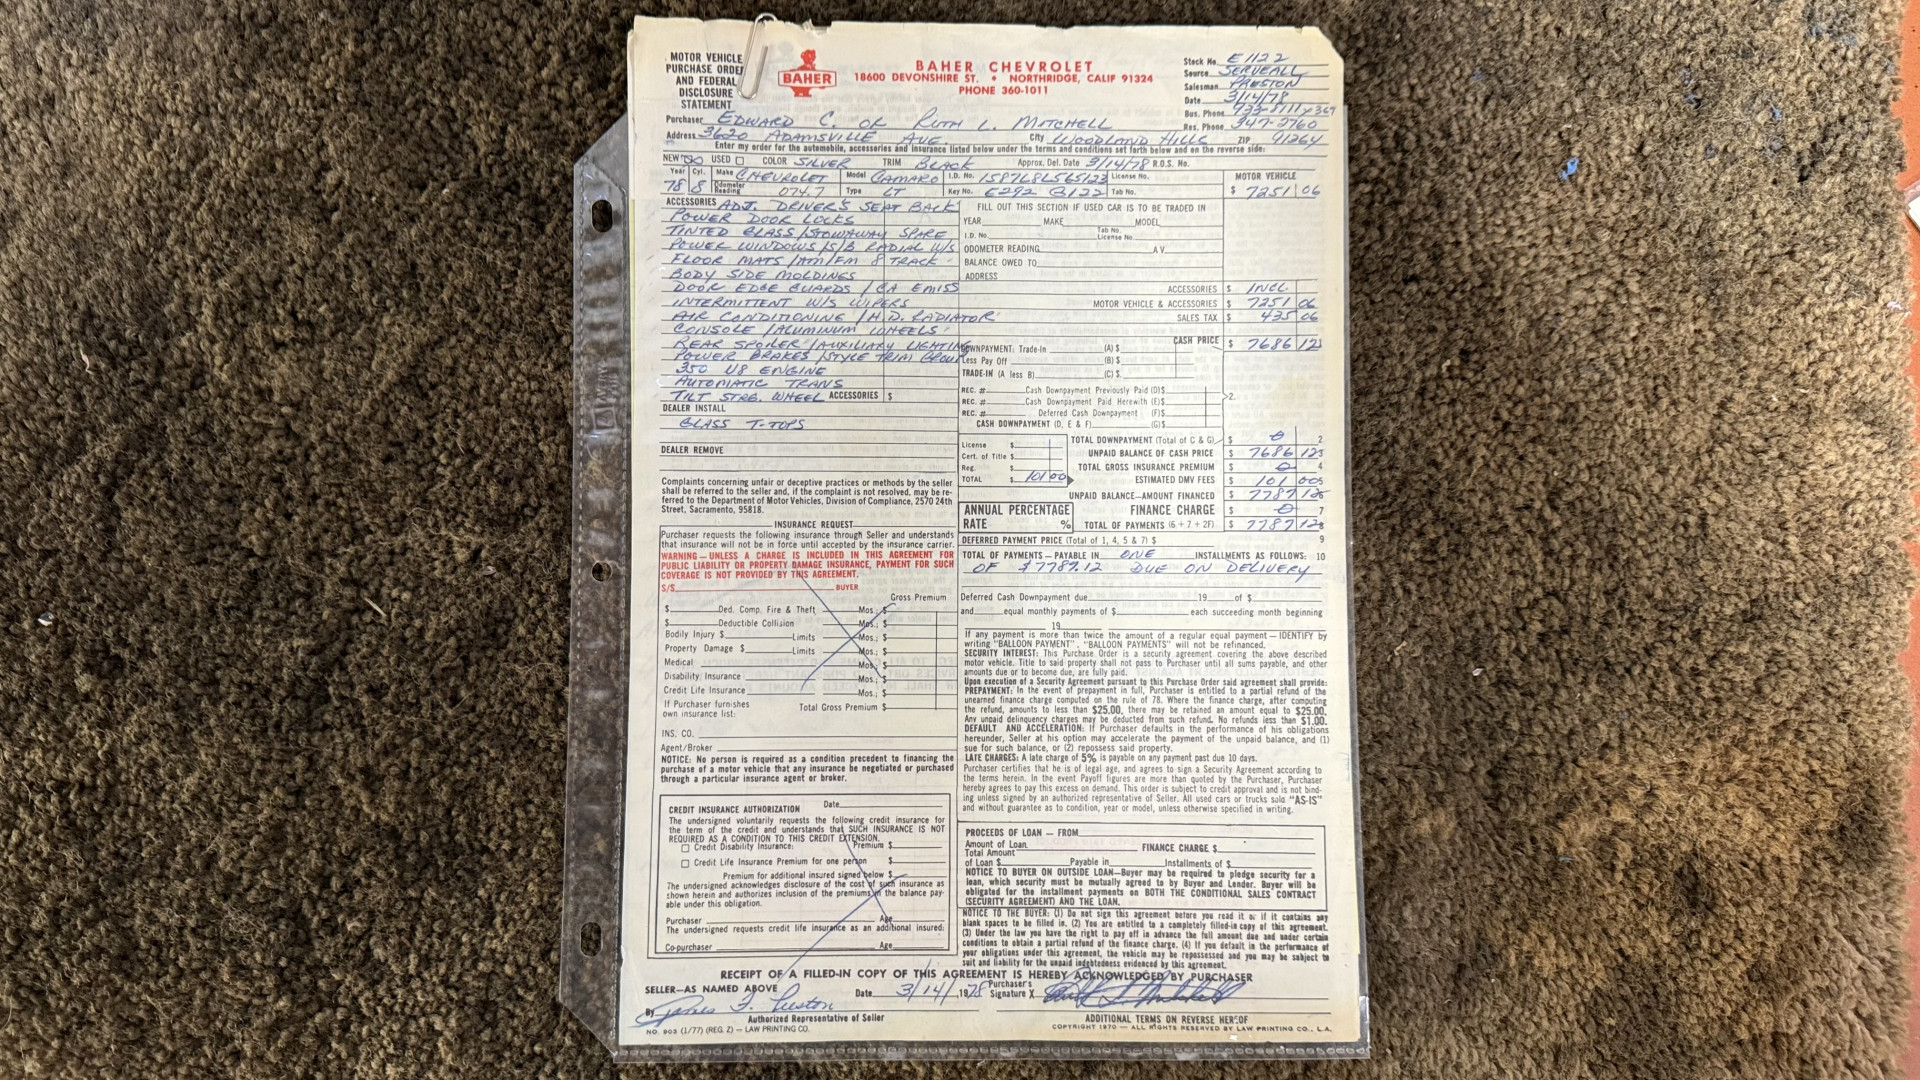 MOTOR VEHICLE
PURCHASE ORDER
AND FEDERAL
DISCLOSURE
STATEMENT
BAHER
BAHER CHEVROLET
18600 DEVONSHIRE ST. • NORTHRIDGE, CALIF 91324
PHONE 360-1011
Stock No. E1122
Source SERVEALL
Salesman PRUSTON
Date 3/14/78
Bus. Phone x369
Res. Phone 347-2760
Purchaser EDWARD C. OR RUTH L. MITCHELL
Address 3620 ADAMSVILLE AVE. City WOODLAND HILLS ZIP 91264
Enter my order for the automobile, accessories and insurance listed below under the terms and conditions set forth below and on the reverse side:
NEW USED COLOR SILVER TRIM BLACK Approx. Del. Date 3/14/78 R.O.S. No.
Year Cyl. Make CHEVROLET Model CAMARO I.D. No. 1S87L8L565123 License No. MOTOR VEHICLE
78 8 Odometer Reading 074.7 Type LT Key No. E292 Q122 Tab No. $ 7251 06
ACCESSORIES ADJ. DRIVER'S SEAT BACK
POWER DOOR LOCKS
TINTED GLASS/STOWAWAY SPARE
POWER WINDOWS/S/B RADIAL W/S
FLOOR MATS/AM/FM 8 TRACK
BODY SIDE MOLDINGS
DOOR EDGE GUARDS / CA EMISS
INTERMITTENT W/S WIPERS
AIR CONDITIONING / H.D. RADIATOR
CONSOLE / ALUMINUM WHEELS
REAR SPOILER/AUXILIARY LIGHTING
POWER BRAKES/STYLE TRIM GROUP
350 V8 ENGINE
AUTOMATIC TRANS
TILT STRG. WHEEL ACCESSORIES $
DEALER INSTALL
GLASS T-TOPS
DEALER REMOVE
Complaints concerning unfair or deceptive practices or methods by the seller
shall be referred to the seller and, if the complaint is not resolved, may be re-
ferred to the Department of Motor Vehicles, Division of Compliance, 2570 24th
Street, Sacramento, 95818.
INSURANCE REQUEST
Purchaser requests the following insurance through Seller and understands
that insurance will not be in force until accepted by the insurance carrier.
WARNING — UNLESS A CHARGE IS INCLUDED IN THIS AGREEMENT FOR
PUBLIC LIABILITY OR PROPERTY DAMAGE INSURANCE, PAYMENT FOR SUCH
COVERAGE IS NOT PROVIDED BY THIS AGREEMENT.
S/S BUYER
Gross Premium
$ Ded. Comp. Fire & Theft Mos.; $
$ Deductible Collision Mos.; $
Bodily Injury $ Limits Mos.; $
Property Damage $ Limits Mos.; $
Medical Mos.; $
Disability Insurance Mos.; $
Credit Life Insurance Mos.; $
If Purchaser furnishes
own insurance list: Total Gross Premium $
INS. CO.
Agent/Broker
NOTICE: No person is required as a condition precedent to financing the
purchase of a motor vehicle that any insurance be negotiated or purchased
through a particular insurance agent or broker.
CREDIT INSURANCE AUTHORIZATION Date
The undersigned voluntarily requests the following credit insurance for
the term of the credit and understands that SUCH INSURANCE IS NOT
REQUIRED AS A CONDITION TO THIS CREDIT EXTENSION.
Credit Disability Insurance: Premium $
Credit Life Insurance Premium for one person $
Premium for additional insured signed below $
The undersigned acknowledges disclosure of the cost of such insurance as
shown herein and authorizes inclusion of the premiums in the balance pay-
able under this obligation.
Purchaser Age
The undersigned requests credit life insurance as an additional insured:
Co-purchaser Age
FILL OUT THIS SECTION IF USED CAR IS TO BE TRADED IN
YEAR MAKE MODEL
I.D. No. Tab No. License No.
ODOMETER READING A V
BALANCE OWED TO
ADDRESS
ACCESSORIES $ INCL
MOTOR VEHICLE & ACCESSORIES $ 7251 06
SALES TAX $ 435 06
CASH PRICE $ 7686 12
DOWNPAYMENT: Trade-In (A) $
Less Pay Off (B) $
TRADE-IN (A less B) (C) $
REC. # Cash Downpayment Previously Paid (D)$
REC. # Cash Downpayment Paid Herewith (E)$
REC. # Deferred Cash Downpayment (F)$
CASH DOWNPAYMENT (D, E & F) (G)$
2.
License $
Cert. of Title $
Reg. $
TOTAL $ 101 00
TOTAL DOWNPAYMENT (Total of C & G) $ 0 2
UNPAID BALANCE OF CASH PRICE $ 7686 12 3
TOTAL GROSS INSURANCE PREMIUM $ 0 4
ESTIMATED DMV FEES $ 101 00 5
UNPAID BALANCE—AMOUNT FINANCED $ 7787 12 6
ANNUAL PERCENTAGE RATE %
FINANCE CHARGE $ 0 7
TOTAL OF PAYMENTS (6 + 7 + 2F) $ 7787 12 8
DEFERRED PAYMENT PRICE (Total of 1, 4, 5 & 7) $ 9
TOTAL OF PAYMENTS — PAYABLE IN ONE INSTALLMENTS AS FOLLOWS: 10
OF $7787.12 DUE ON DELIVERY
Deferred Cash Downpayment due 19 of $
and equal monthly payments of $ each succeeding month beginning
19
If any payment is more than twice the amount of a regular equal payment — IDENTIFY by
writing "BALLOON PAYMENT". "BALLOON PAYMENTS" will not be refinanced.
SECURITY INTEREST: This Purchase Order is a security agreement covering the above described
motor vehicle. Title to said property shall not pass to Purchaser until all sums payable, and other
amounts due or to become due, are fully paid.
Upon execution of a Security Agreement pursuant to this Purchase Order said agreement shall provide:
PREPAYMENT: In the event of prepayment in full, Purchaser is entitled to a partial refund of the
unearned finance charge computed on the rule of 78. Where the finance charge, after computing
the refund, amounts to less than $25.00, there may be retained an amount equal to $25.00.
Any unpaid delinquency charges may be deducted from such refund. No refunds less than $1.00.
DEFAULT AND ACCELERATION: If Purchaser defaults in the performance of his obligations
hereunder, Seller at his option may accelerate the payment of the unpaid balance, and (1)
sue for such balance, or (2) repossess said property.
LATE CHARGES: A late charge of 5% is payable on any payment past due 10 days.
Purchaser certifies that he is of legal age, and agrees to sign a Security Agreement according to
the terms herein. In the event Payoff figures are more than quoted by the Purchaser, Purchaser
hereby agrees to pay this excess on demand. This order is subject to credit approval and is not bind-
ing unless signed by an authorized representative of Seller. All used cars or trucks sold "AS-IS"
and without guarantee as to condition, year or model, unless otherwise specified in writing.
PROCEEDS OF LOAN — FROM
Amount of Loan FINANCE CHARGE $
Total Amount
of Loan $ Payable in Installments of $
NOTICE TO BUYER ON OUTSIDE LOAN—Buyer may be required to pledge security for a
loan, which security must be mutually agreed to by Buyer and Lender. Buyer will be
obligated for the installment payments on BOTH THE CONDITIONAL SALES CONTRACT
(SECURITY AGREEMENT) AND THE LOAN.
NOTICE TO THE BUYER: (1) Do not sign this agreement before you read it or if it contains any
blank spaces to be filled in. (2) You are entitled to a completely filled-in copy of this agreement.
(3) Under the law you have the right to pay off in advance the full amount due and under certain
conditions to obtain a partial refund of the finance charge. (4) If you default in the performance of
your obligations under this agreement, the vehicle may be repossessed and you may be subject to
suit and liability for the unpaid indebtedness evidenced by this agreement.
RECEIPT OF A FILLED-IN COPY OF THIS AGREEMENT IS HEREBY ACKNOWLEDGED BY PURCHASER
SELLER—AS NAMED ABOVE Date 3/14/ ,1978 Purchaser's Signature X
By James F. Preston
Authorized Representative of Seller ADDITIONAL TERMS ON REVERSE HEREOF
NO. 903 (1/77) (REG. Z) — LAW PRINTING CO. COPYRIGHT 1970 — ALL RIGHTS RESERVED BY LAW PRINTING CO., L.A.